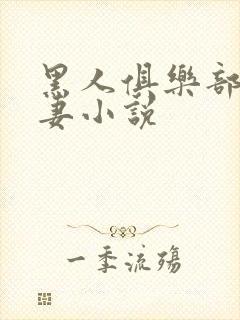 黑人俱樂部
妻小說
一季流殤